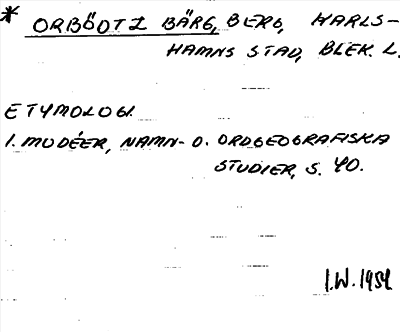 * ORBÖDTZ BÄRG, BERG, KARLS-
HAMNS STAD, BLEK. L.
ETYMOLOGI.
I. MODÉER, NAMN- O. ORDGEOGRAFISKA
STUDIER, S. 40.
I.W. 1954.